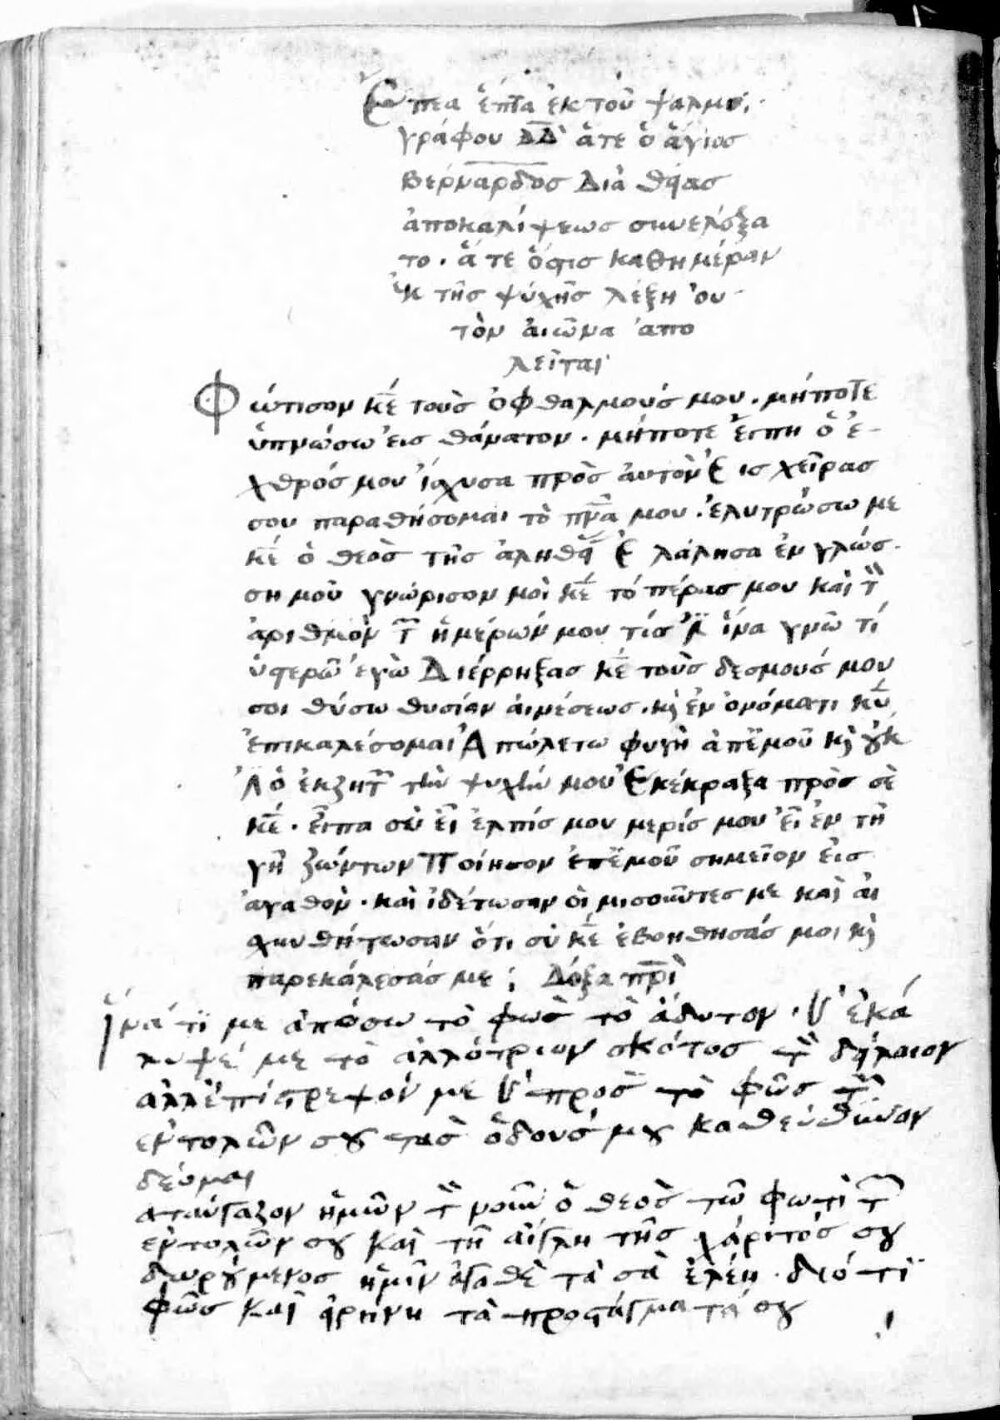 Ἔπεα ἑπτὰ ἐκ τοῦ ψαλμο
γράφου ΔΔ ἅτε ὁ ἅγιος
Βερνάρδος Διὰ θείας
ἀποκαλύψεως συνελέξα
το. ἅ τε ὅστις καθημέραν
ἐκ τῆς ψύχῆς λέξη οὐ
τὸν ἀιῶνα ἀπο
λεῖται
Φώτισον κε τοὺς ὀφθαλμούς μου. μήποτε
ὑπνώσω εἰς θάνατον. μήποτε εἴπη ὁ ἐ-
χθρός μου ἴσχυσα πρὸς ἀυτὸν Ἐις χεῖρας
σου παραθήσομαι τὸ πνα μου. ἐλυτρώσω με
κε ὁ θεὸς τῆς ἀληθεί Ἐλάλησα ἐν γλώσ-
ση μοῦ γνώρισον μοὶ κε τό πέρας μου καὶ τ
ἀριθμὸν τ ἡμέρών μου τίς ἵνα γνῶ τί
ὑστερῶ ἐγὼ Διέρρηξας κε τοὺς δεσμούς μου
σοι θύσω θυσίαν αἰνέσεως. κὶ ἐν ὀνόματι κυ
ἐπικαλέσομαι Ἀπώλετω φυγὴ ἀπἐμοῦ κὶ ȣκ
ὁ ἐκζητ τὴν ψυχήν μου Ἐκέκραξα πρὸς σὲ
κε. εἶπα σὺ εἶ ἐλπίς μου μερίς μου εἶ ἐν τῆ
γῆ ζώντων Ποίησον ἐπἐμοῦ σημεῖον εἰς
ἀγαθὸν. καὶ ἰδέτωσαν οἱ μισοῦντες με καὶ αἰ
σχυνθήτωσαν ὅτι σὺ κε ἐβοηθησάς μοι κὶ
παρεκάλεσάς με; Δόξα πρὶ
Ἵνα τί με ἀπόσω τὸ φῶς τὸ ἄδυτον. ἐκά
λυψέ με τὸ ἀλλότριον σκότος τ δείλαιον
ἀλλἐπίστρεψόν με πρὸς τὸ φῶς τ
ἐντολῶν σȣ τὰς ὅδους μȣ κατεύθυνον
δέομαι
ἀταύγαζον ἡμῶν τ νοῦν ὁ θεὸς τῶ φωτὶ τ
ἐντολῶν σȣ καὶ τῆ αἴγλη τῆς χάριτός σȣ
δωρȣμενος ἡμῖν ἀγαθὲ τὰ σὰ ἐλέη. διότι
φῶς καὶ εἰρήνη τὰ προστάγματά σȣ